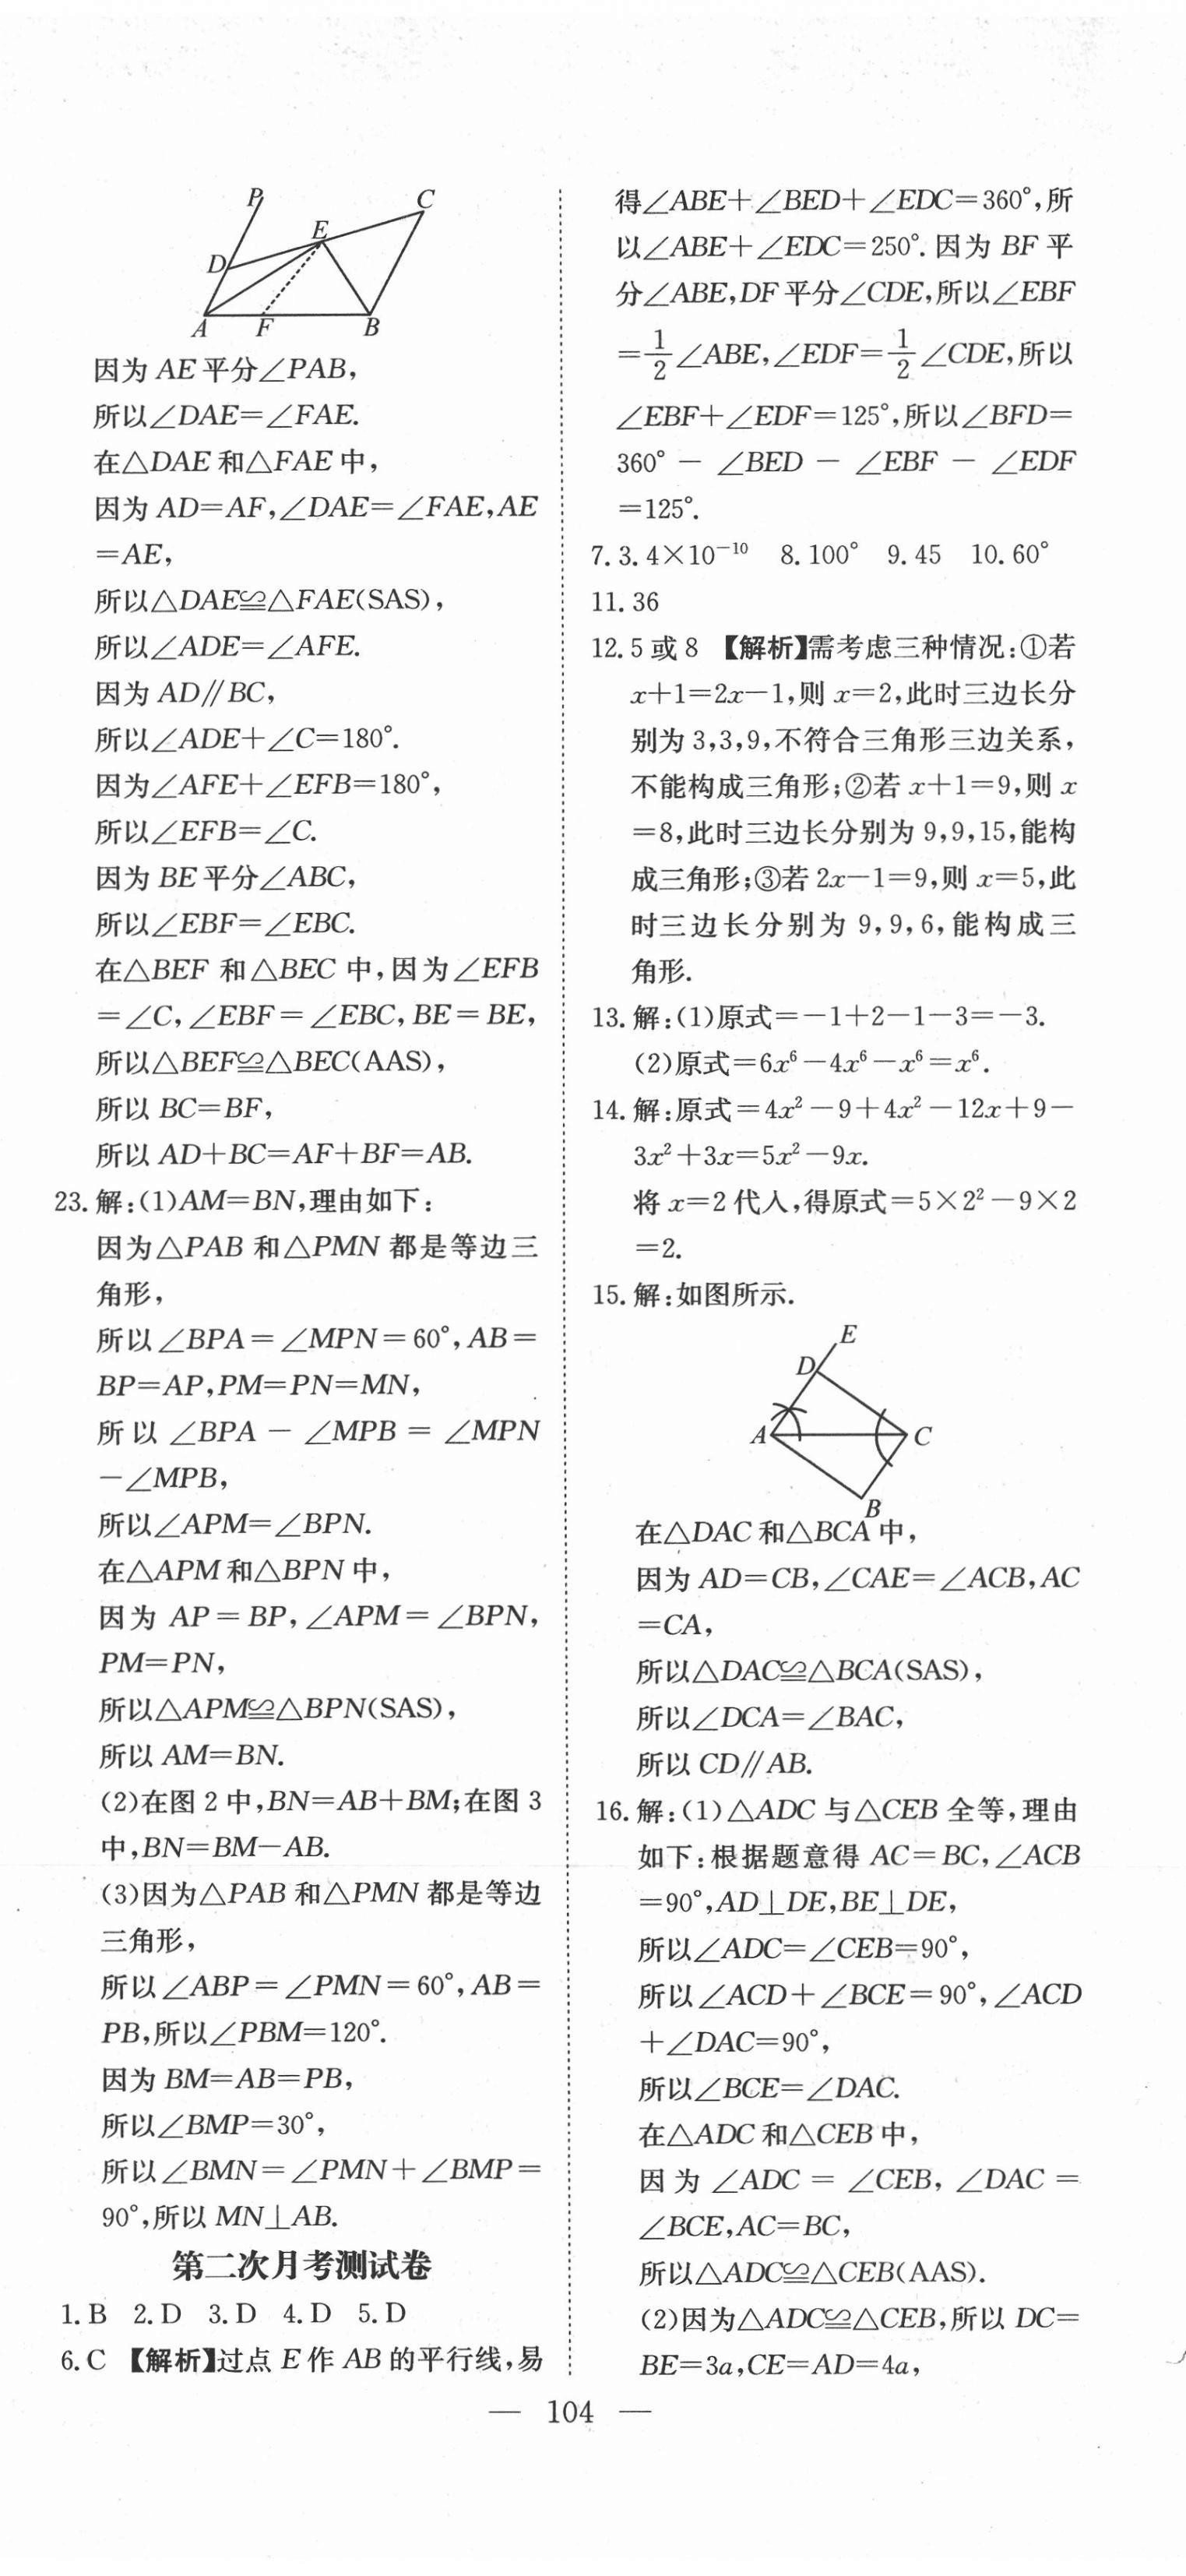 P
C
E
D
A
F
B
因为 AE 平分∠PAB,
所以∠DAE=∠FAE.
在△DAE 和△FAE 中,
因为 AD=AF,∠DAE=∠FAE,AE
=AE,
所以△DAE≌△FAE(SAS),
所以∠ADE=∠AFE.
因为 AD∥BC,
所以∠ADE+∠C=180°.
因为∠AFE+∠EFB=180°,
所以∠EFB=∠C.
因为 BE 平分∠ABC,
所以∠EBF=∠EBC.
在△BEF 和△BEC 中,因为∠EFB
=∠C,∠EBF=∠EBC,BE=BE,
所以△BEF≌△BEC(AAS),
所以 BC=BF,
所以 AD+BC=AF+BF=AB.
23. 解:(1)AM=BN,理由如下:
因为△PAB 和△PMN 都是等边三
角形,
所以∠BPA=∠MPN=60°,AB=
BP=AP,PM=PN=MN,
所以 ∠BPA − ∠MPB = ∠MPN
−∠MPB,
所以∠APM=∠BPN.
在△APM 和△BPN 中,
因为 AP=BP,∠APM=∠BPN,
PM=PN,
所以△APM≌△BPN(SAS),
所以 AM=BN.
(2)在图 2 中,BN=AB+BM;在图 3
中,BN=BM−AB.
(3)因为△PAB 和△PMN 都是等边
三角形,
所以∠ABP=∠PMN=60°,AB=
PB,所以∠PBM=120°.
因为 BM=AB=PB,
所以∠BMP=30°,
所以∠BMN=∠PMN+∠BMP=
90°,所以 MN⊥AB.
第二次月考测试卷
1. B 2. D 3. D 4. D 5. D
6. C 【解析】过点 E 作 AB 的平行线,易
得∠ABE+∠BED+∠EDC=360°,所
以∠ABE+∠EDC=250°. 因为 BF 平
分∠ABE,DF 平分∠CDE,所以∠EBF
=1/2∠ABE,∠EDF=1/2∠CDE,所以
∠EBF+∠EDF=125°,所以∠BFD=
360° − ∠BED − ∠EBF − ∠EDF
=125°.
7. 3.4×10⁻¹⁰ 8. 100° 9. 45 10. 60°
11. 36
12. 5 或 8 【解析】需考虑三种情况:①若
x+1=2x−1,则 x=2,此时三边长分
别为 3,3,9,不符合三角形三边关系,
不能构成三角形;②若 x+1=9,则 x
=8,此时三边长分别为 9,9,15,能构
成三角形;③若 2x−1=9,则 x=5,此
时三边长分别为 9,9,6,能构成三
角形.
13. 解:(1)原式=−1+2−1−3=−3.
(2)原式=6x⁶−4x⁶−x⁶=x⁶.
14. 解:原式=4x²−9+4x²−12x+9−
3x²+3x=5x²−9x.
将 x=2 代入,得原式=5×2²−9×2
=2.
15. 解:如图所示.
E
D
A
C
B
在△DAC 和△BCA 中,
因为 AD=CB,∠CAE=∠ACB,AC
=CA,
所以△DAC≌△BCA(SAS),
所以∠DCA=∠BAC,
所以 CD∥AB.
16. 解:(1)△ADC 与△CEB 全等,理由
如下:根据题意得 AC=BC,∠ACB
=90°,AD⊥DE,BE⊥DE,
所以∠ADC=∠CEB=90°,
所以∠ACD+∠BCE=90°,∠ACD
+∠DAC=90°,
所以∠BCE=∠DAC.
在△ADC 和△CEB 中,
因为 ∠ADC = ∠CEB, ∠DAC =
∠BCE,AC=BC,
所以△ADC≌△CEB(AAS).
(2)因为△ADC≌△CEB,所以 DC=
BE=3a,CE=AD=4a,
— 104 —